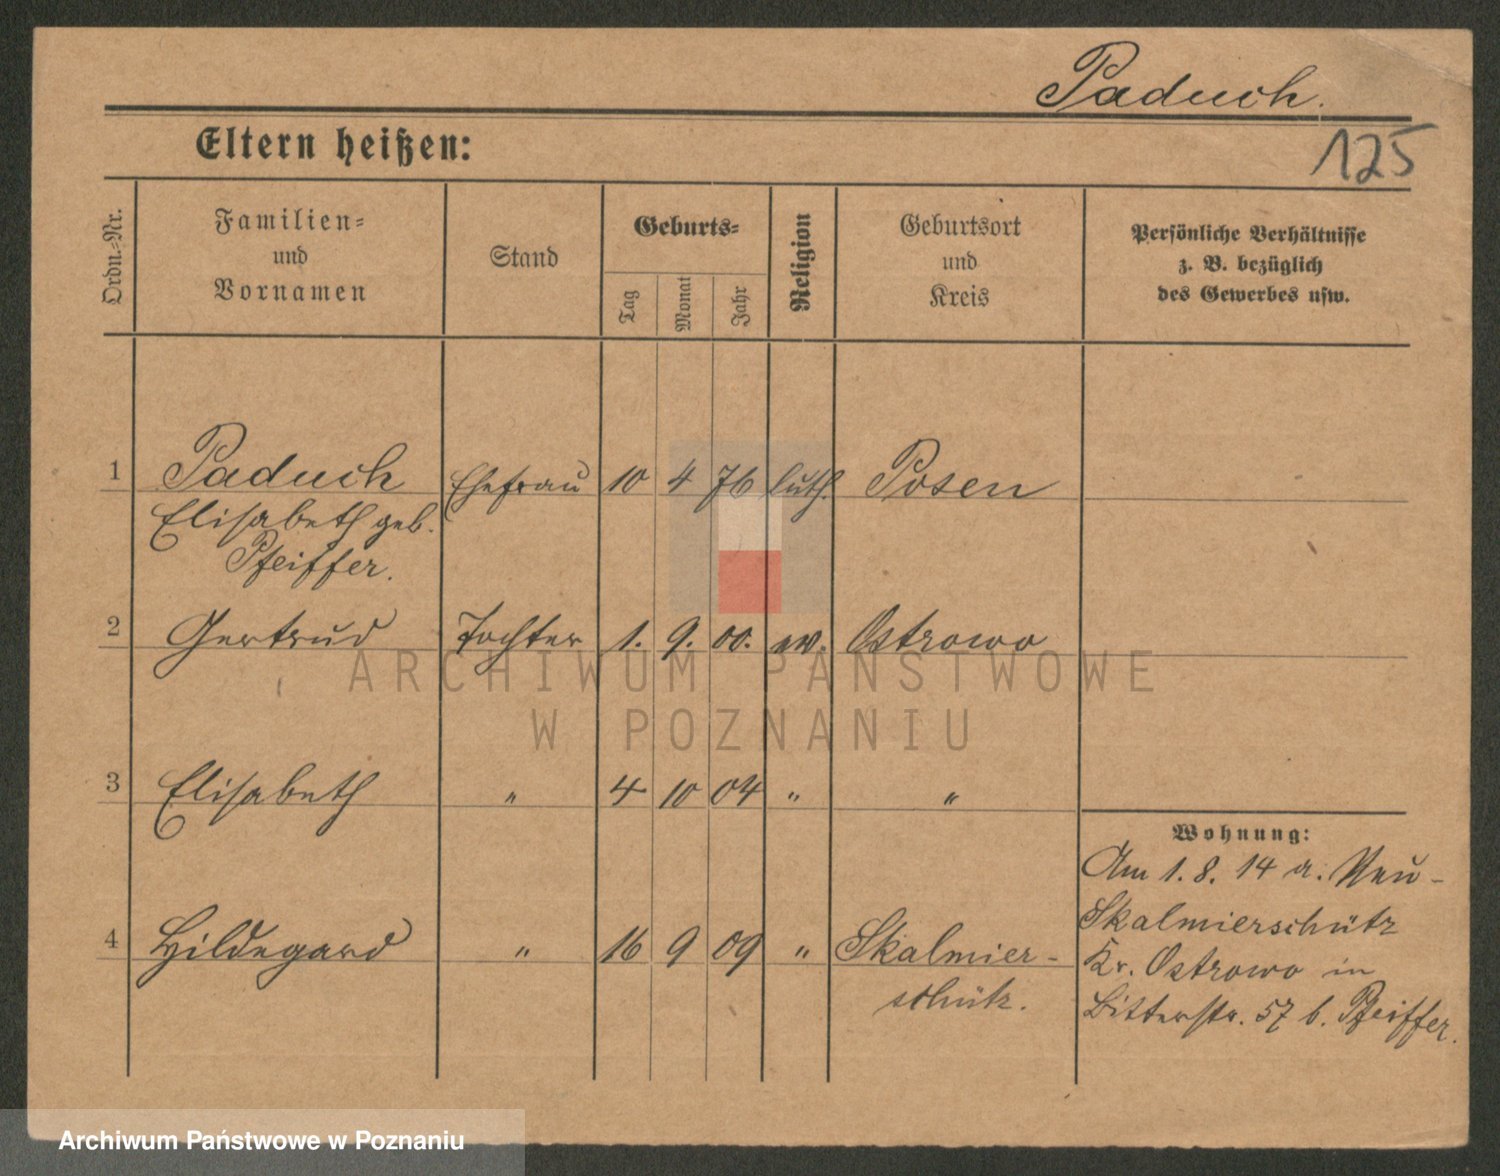 Paduch.
Eltern heißen:
125
Ordn.-Nr.
Familien-
und
Vornamen
Stand
Geburts-
Tag
Monat
Jahr
Religion
Geburtsort
und
Kreis
Persönliche Verhältnisse
z. B. bezüglich
des Gewerbes usw.
1 Paduch Ehefrau 10 4 76 luth. Posen
Elisabeth geb.
Pfeiffer.
2 Gertrud Tochter 1. 9. 00. ev. Ostrowo
ARCHIWUM PAŃSTWOWE
W POZNANIU
3 Elisabeth " 4 10 04 " "
4 Hildegard " 16 9 09 " Skalmier-
schütz.
Wohnung:
Am 1. 8. 14 a. Neu-
Skalmierschütz
Kr. Ostrowo in
Bitterstr. 57 b. Pfeiffer.
Archiwum Państwowe w Poznaniu